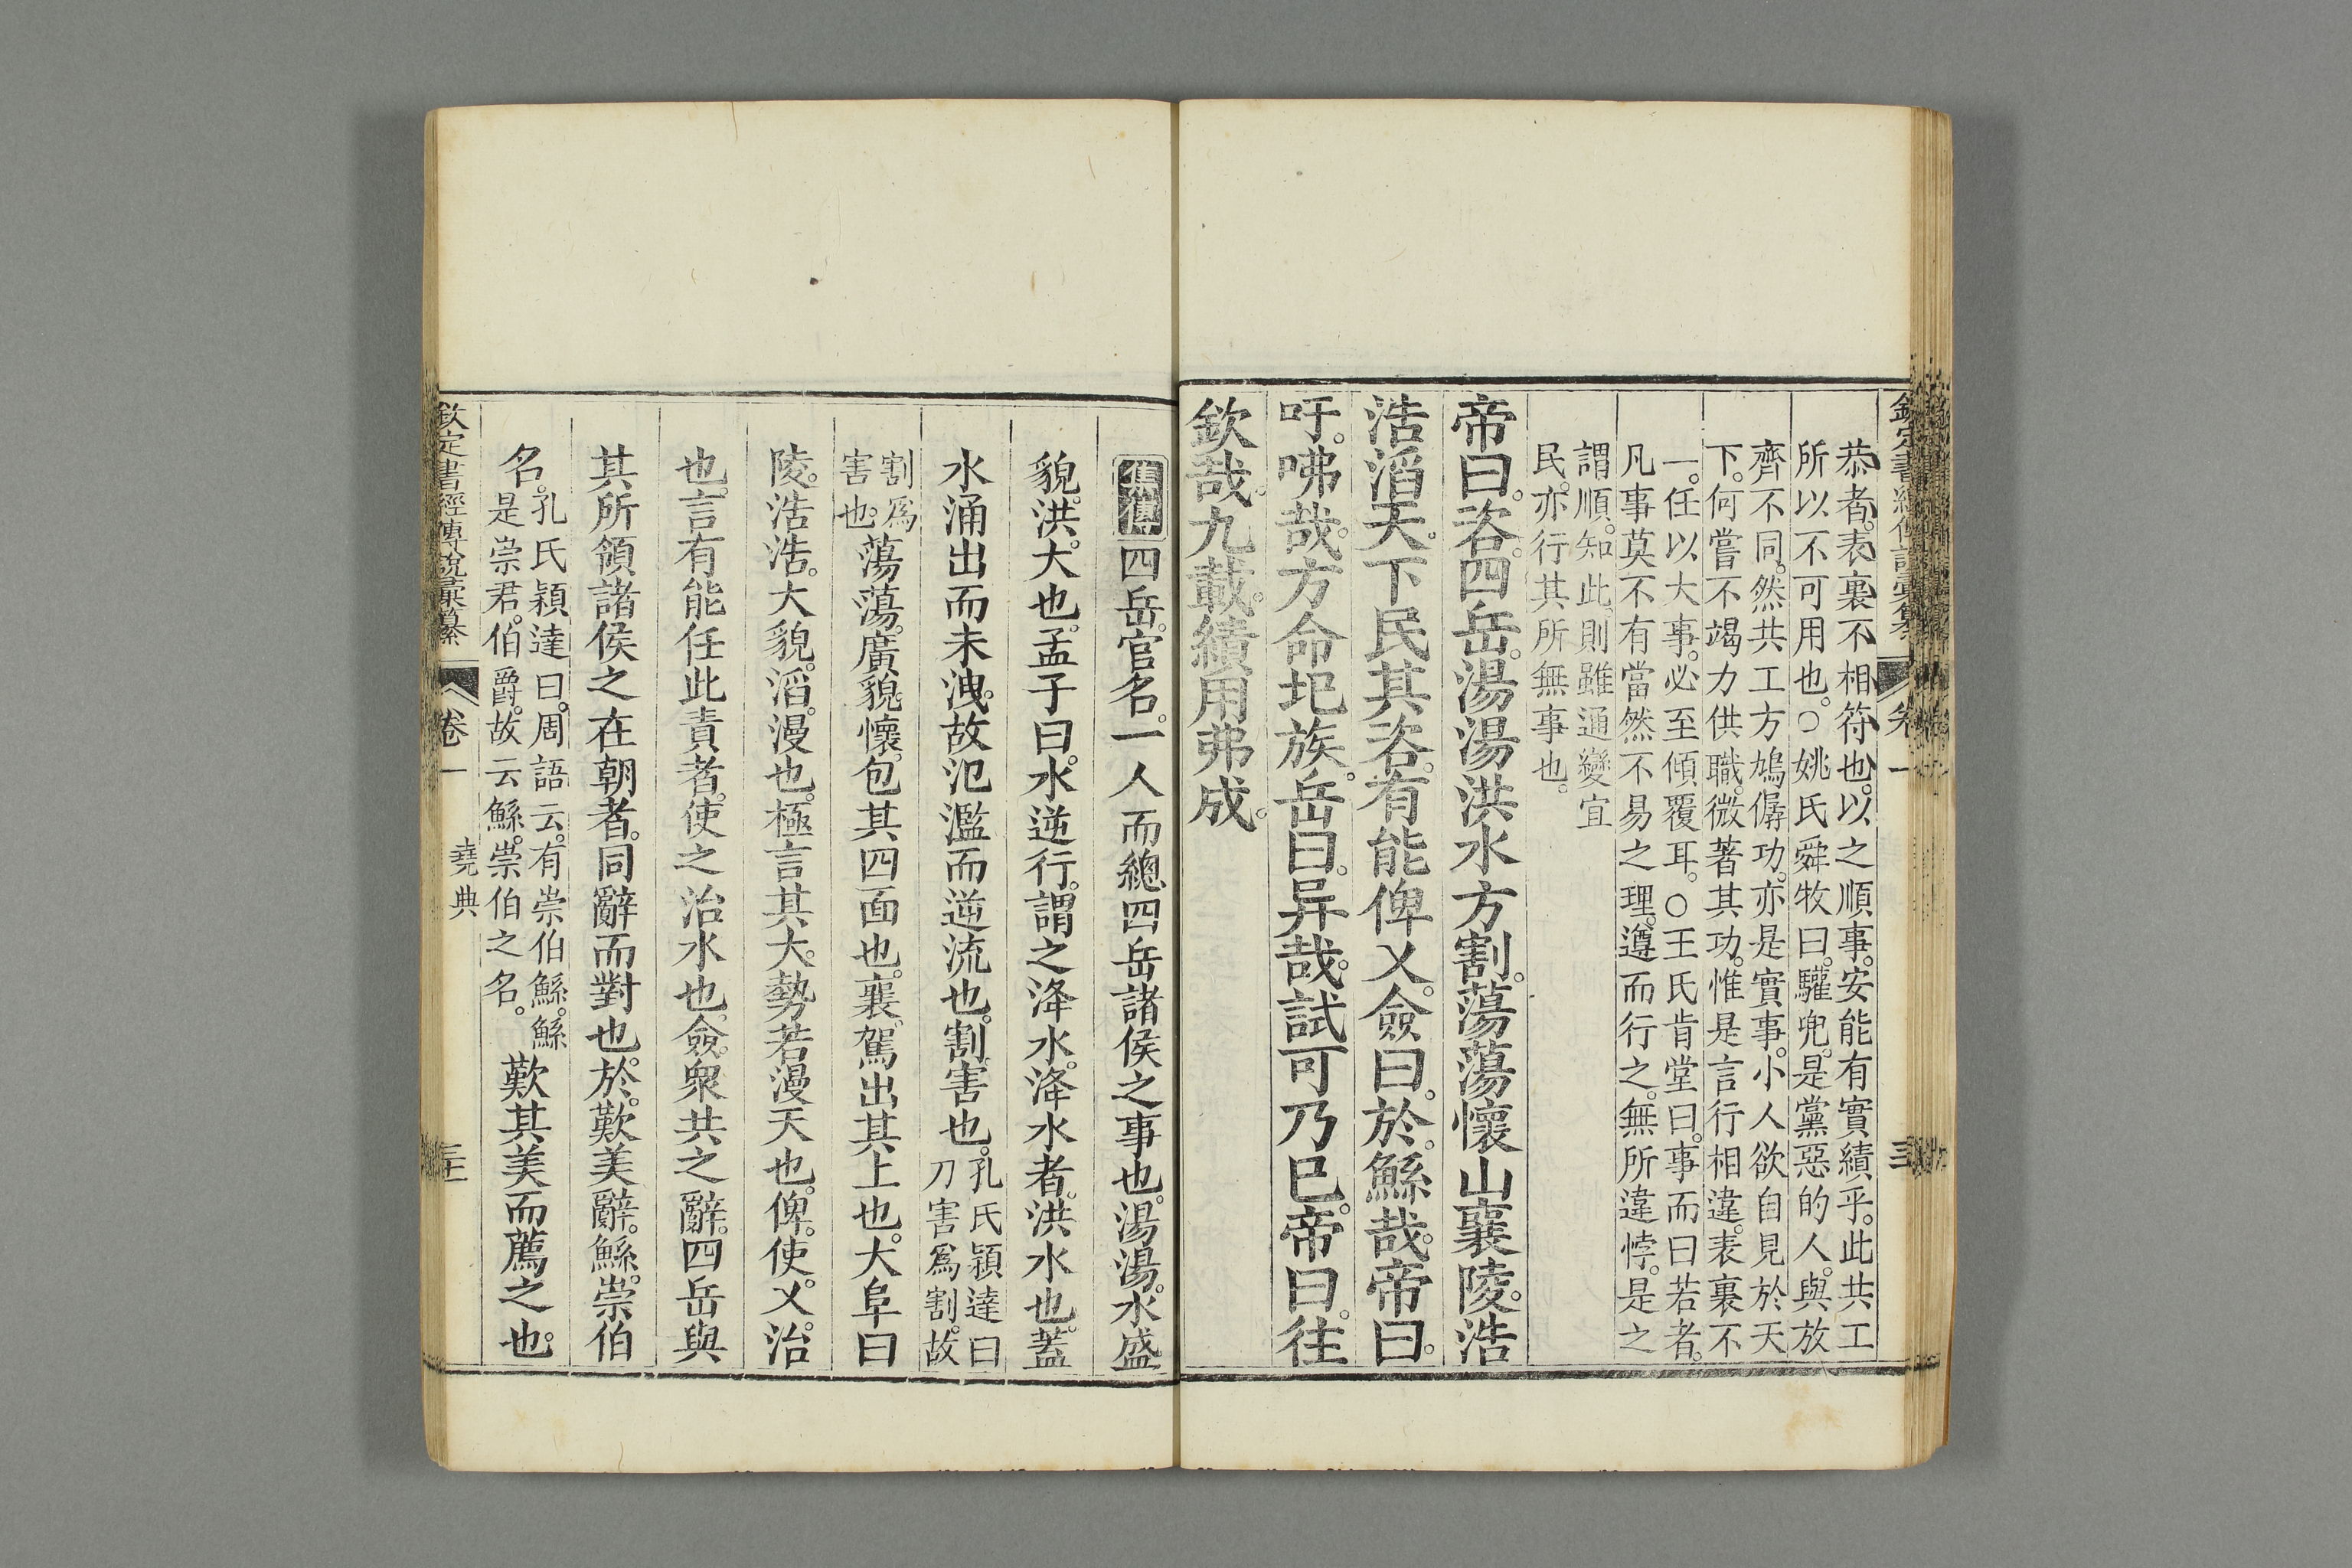 恭者。表裏不相符也。以之順事。安能有實績乎。此共工
所以不可用也。○姚氏舜牧曰。驩兜。是黨惡的人。與放
齊不同。然共工方鳩僝功。亦是實事。小人欲自見於天
下。何嘗不竭力供職。微著其功。惟是言行相違。表裏不
一。任以大事。必至傾覆耳。○王氏肯堂曰。事而曰若者。
凡事莫不有當然不易之理。遵而行之。無所違悖。是之
謂順。知此。則雖通變宜
民。亦行其所無事也。
帝曰。咨。四岳。湯湯洪水方割。蕩蕩懷山襄陵。浩
浩滔天。下民其咨。有能俾乂。僉曰。於。鯀哉。帝曰。
吁。咈哉。方命圮族。岳曰。异哉。試可乃已。帝曰。往
欽哉。九載。績用弗成。
四岳。官名。一人而總四岳諸侯之事也。湯湯。水盛
貌。洪。大也。孟子曰。水逆行。謂之洚水。洚水者。洪水也。蓋
水涌出而未洩。故汜濫而逆流也。割。害也。孔氏穎達曰刀害爲割。故
割爲害也。蕩蕩。廣貌。懷。包其四面也。襄。駕出其上也。大阜曰
陵。浩浩。大貌。滔。漫也。極言其大。勢若漫天也。俾。使。乂。治
也。言有能任此責者。使之治水也。僉。衆共之辭。四岳與
其所領諸侯之在朝者。同辭而對也。於。歎美辭。鯀。崇伯
名。孔氏穎達曰。周語云。有崇伯鯀。鯀是崇君。伯爵。故云鯀。崇伯之名。歎其美而薦之也。
欽定書經傳說彙纂 卷一 堯典